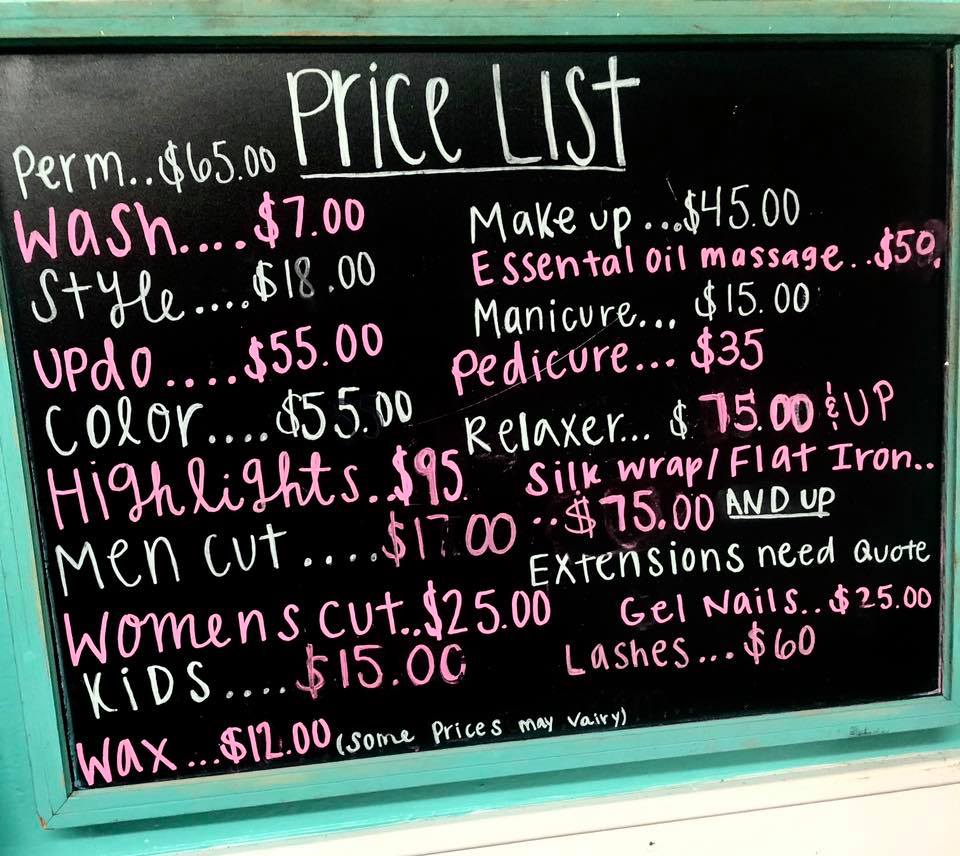 Price List
Perm..$65.00
Wash....$7.00
Style....$18.00
Updo....$55.00
Color....$55.00
Highlights..$95
Men cut....$17.00
Womens cut..$25.00
Kids....$15.00
Wax...$12.00 (some Prices may vairy)
Make up...$45.00
Essental oil massage..$50.
Manicure... $15.00
Pedicure... $35
Relaxer... $ 75.00 & UP
Silk wrap/Flat Iron..
..$75.00 AND UP
Extensions need Quote
Gel Nails..$25.00
Lashes...$60